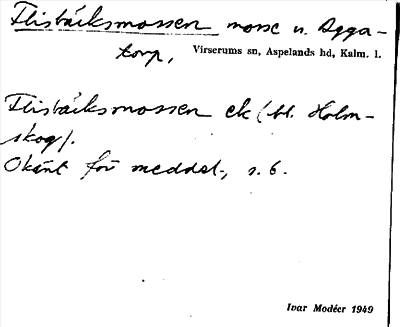 Flisbäksmossen mosse n. Agga-
torp, Virserums sn, Aspelands hd, Kalm. l.
Flisbäksmossen ek (bl. Holm-
skog).
Okänt för meddel., s. 6.
Ivar Modéer 1949